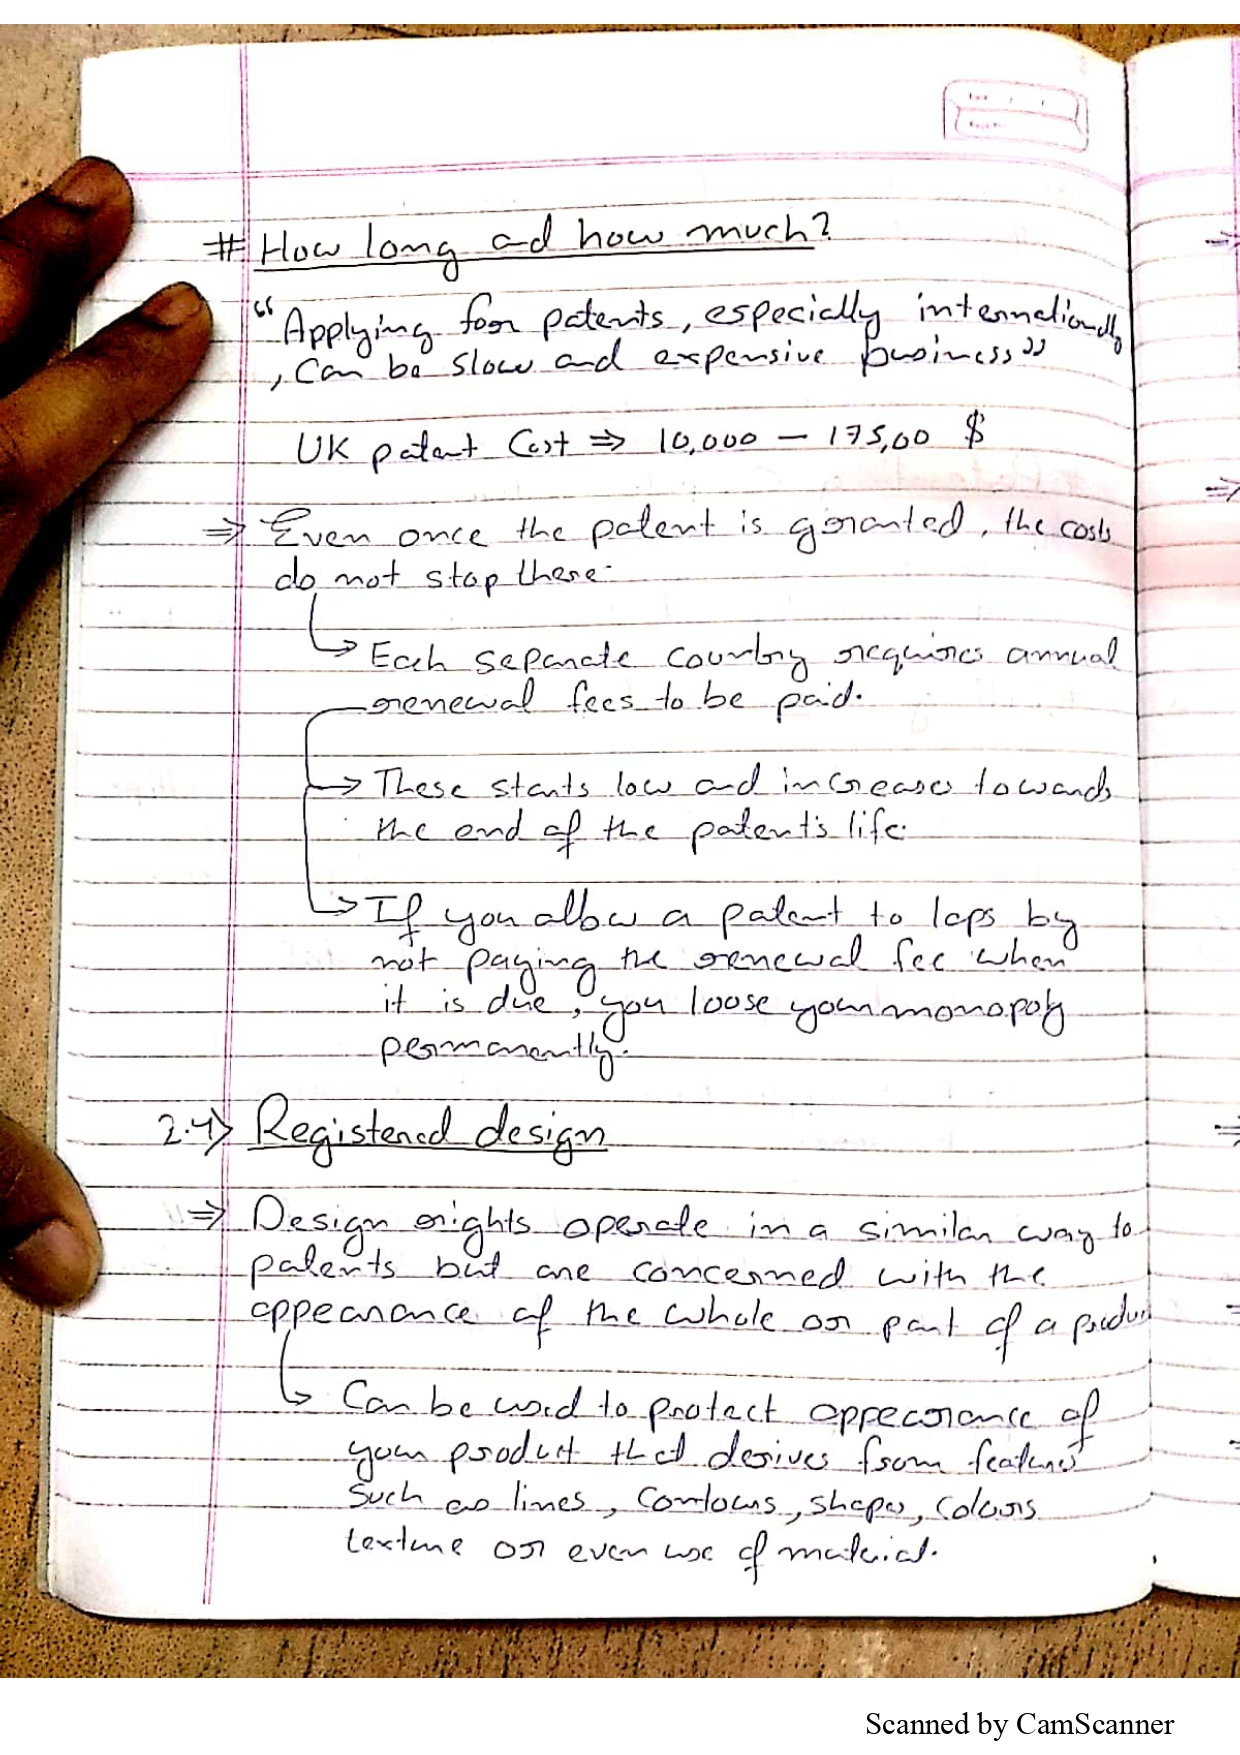 # How long ad how much?
“Applying for patents, especially internationally
, Can be slow and expensive business”
UK patent Cost ⇒ 10,000 — 175,00 $
⇒ Even once the patent is granted, the costs
do not stop there.
→ Each separate country requires annual
renewal fees to be paid.
→ These starts low and increases towards
the end of the patent's life.
→ If you allow a patent to laps by
not paying the renewal fee when
it is due, you loose your monopoly
permanently.
2.4) Registered design
⇒ Design rights operate in a similar way to
patents but are concerned with the
appearance of the whole or part of a product
→ Can be used to protect appearance of
your product that derives from features
such as lines, contours, shapes, colours
texture or even use of material.
Scanned by CamScanner